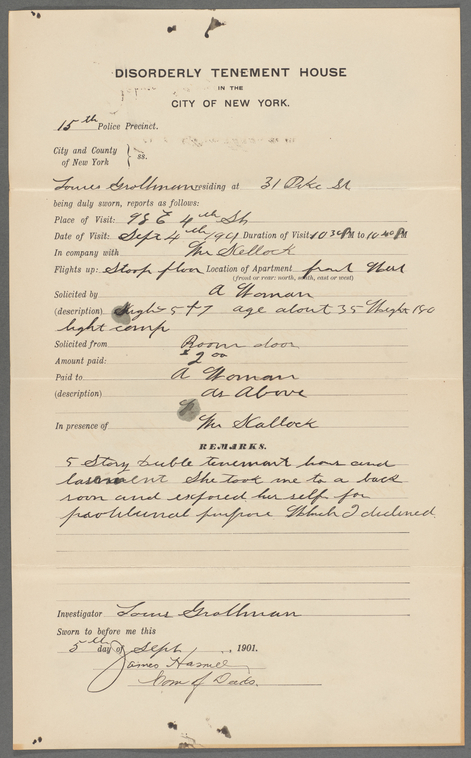 DISORDERLY TENEMENT HOUSE
IN THE
CITY OF NEW YORK.
15th Police Precinct.
City and County
of New York } ss.
Louis Grollman residing at 31 Pike St
being duly sworn, reports as follows:
Place of Visit: E 4th St
Date of Visit: Sept 4th 1901 Duration of Visit 10 30 PM to 10 40 PM
In company with Mr Kellock
Flights up: Stoop floor Location of Apartment front West
(front or rear: north, south, east or west)
Solicited by A Woman
(description) Hight 5 + 7 age about 35 Weight 180
light comp
Solicited from Room door
Amount paid: $2 00
Paid to A Woman
(description) as Above
In presence of Mr Kallock
REMARKS.
5 Story Duble tenement hous and
basement She took me to a back
room and exposed her self for
purpose Which I declined
Investigator Louis Grollman
Sworn to before me this
5th day of Sept 1901.
James Hamel
Com of Deeds.